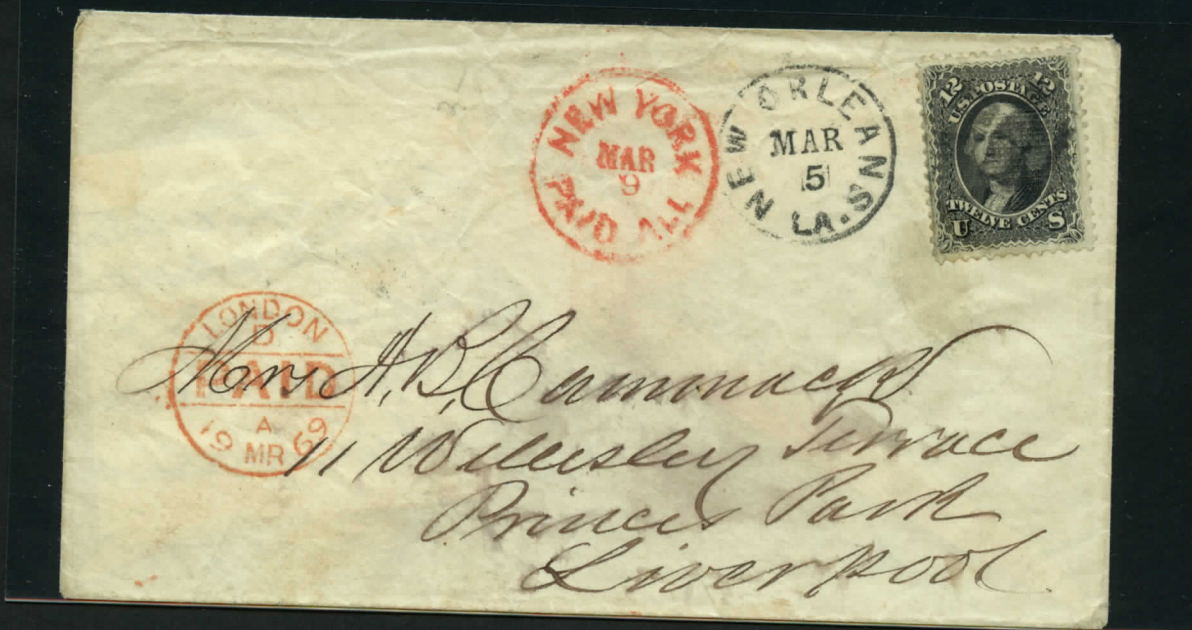 NEW YORK
MAR
9
PAID ALL
NEW ORLEANS
MAR
5
LA.
12 12
U.S. POSTAGE
TWELVE CENTS
U S
LONDON
D
PAID
A
19 MR 69
Mrs A. B. Cammack
11 Wellesley Terrace
Princes Park
Liverpool